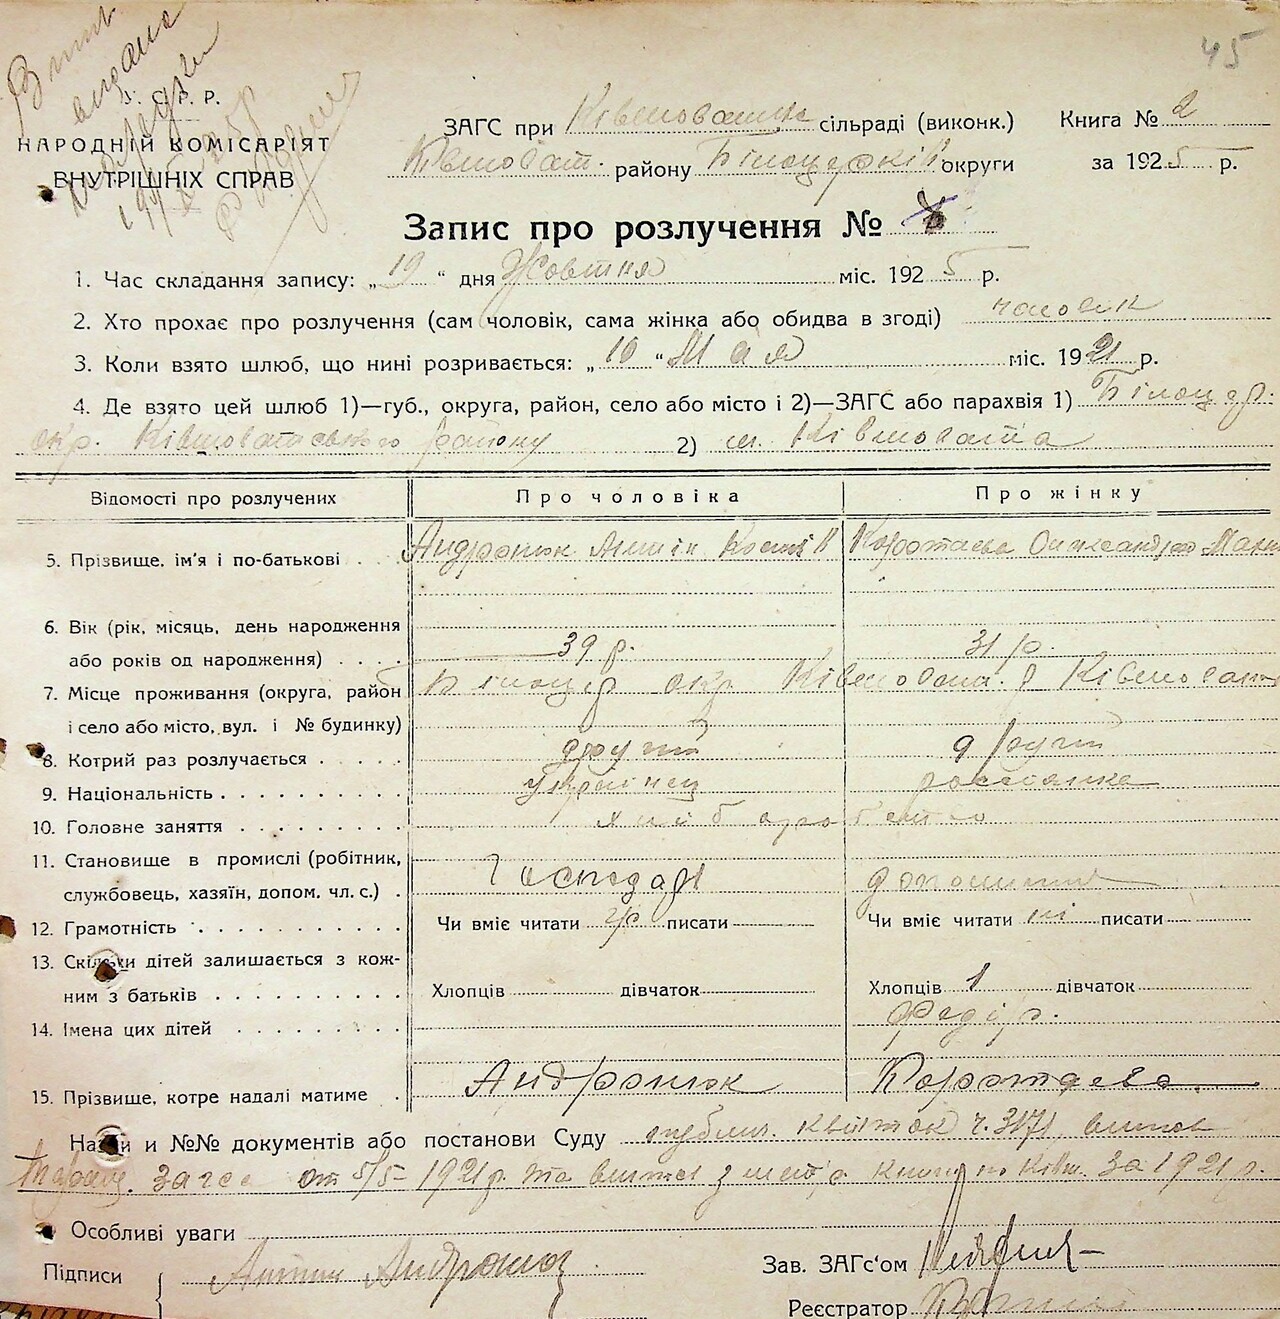 45
У. С. Р. Р.
НАРОДНІЙ КОМІСАРІЯТ
ВНУТРІШНІХ СПРАВ
ЗАГС при Ківшоватій сільраді (виконк.) Книга № 2
Ківшоват. району Білоцерків округи за 1925 р.
Запис про розлучення №
1. Час складання запису: „19“ дня Жовтня міс. 1925 р.
2. Хто прохає про розлучення (сам чоловік, сама жінка або обидва в згоді) чоловік
3. Коли взято шлюб, що нині розривається: „10“ Мая міс. 1921 р.
4. Де взято цей шлюб 1)—губ., округа, район, село або місто і 2)—ЗАГС або парахвія 1) Білоцер.
окр. Ківшоватського району 2) м. Ківшовата
Відомості про розлучених Про чоловіка Про жінку
5. Прізвище, ім'я і по-батькові Андронюк Антін Коротаєва Олександра
6. Вік (рік, місяць, день народження
або років од народження) 39 р. 31 р.
7. Місце проживання (округа, район Білоцер окр Ківшоват. р Ківшовата
і село або місто, вул. і № будинку)
8. Котрий раз розлучається другий другий
9. Національність українец россіянка
10. Головне заняття хліборобство
11. Становище в промислі (робітник,
службовець, хазяїн, допом. чл. с.) Господарь
12. Грамотність Чи вміє читати гр писати Чи вміє читати ні писати
13. Скільки дітей залишається з кож-
ним з батьків Хлопців дівчаток Хлопців 1 дівчаток
14. Імена цих дітей Федір.
15. Прізвище, котре надалі матиме Андронюк Коротаева
Назви и №№ документів або постанови Суду публик. квіток ч. 3171, витяг
загса от 5/5-1921 р. та витяг з метр книги по Ківш. за 1921 р.
Особливі уваги
Підписи Антин Андронюк Зав. ЗАГс'ом
Реєстратор